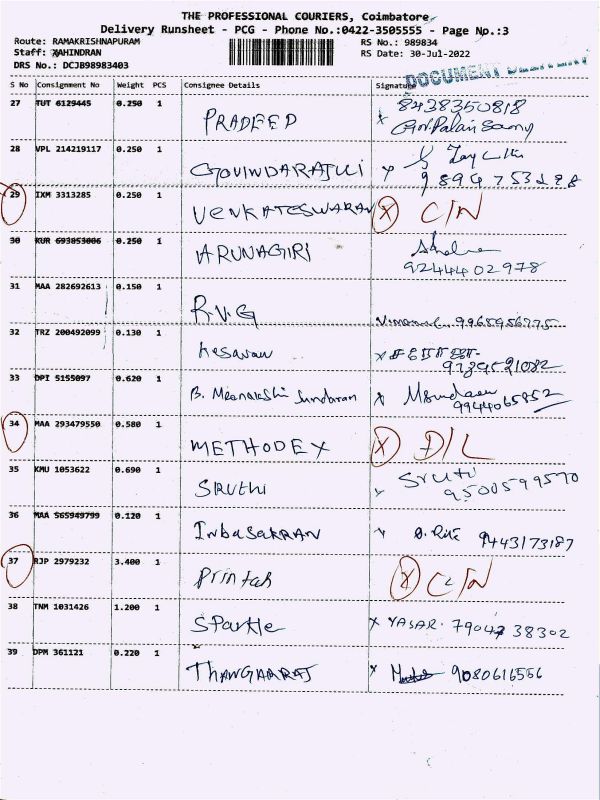 THE PROFESSIONAL COURIERS, Coimbatore
Delivery Runsheet - PCG - Phone No.:0422-3505555 - Page No.:3
Route: RAMAKRISHNAPURAM
RS No.: 989834
Staff: MAHINDRAN
RS Date: 30-Jul-2022
DRS No.: DCJB98983403
DOCUMENT DELIVERY
S No Consignment No Weight PCS Consignee Details Signature
27 TUT 6129445 0.250 1 PRADEEP x 8438350818
28 VPL 214219117 0.250 1 GOVINDARAJULU x
9894753288
29 IXM 3313285 0.250 1 VENKATESWARAN x C/N
30 KUR 693853006 0.250 1 ARUNAGIRI
9244402978
31 MAA 282692613 0.150 1 R.V.G 9965956775
32 TRZ 200492099 0.130 1 Kesavan x
9789521082
33 DPI 5155097 0.620 1 B. Meenakshi Sundaran x
9944065852
34 MAA 293479550 0.580 1 METHODEX x D/L
35 KMU 1053622 0.690 1 SRUTHI Sruti
9500599570
36 MAA 565949799 0.120 1 Inbasakaran x 9443173187
37 RJP 2979232 3.400 1 Printah x C/N
38 TNM 1031426 1.200 1 Sparkle x YASAR. 7904738302
39 DPM 361121 0.220 1 THANGARAJ x 9080616556